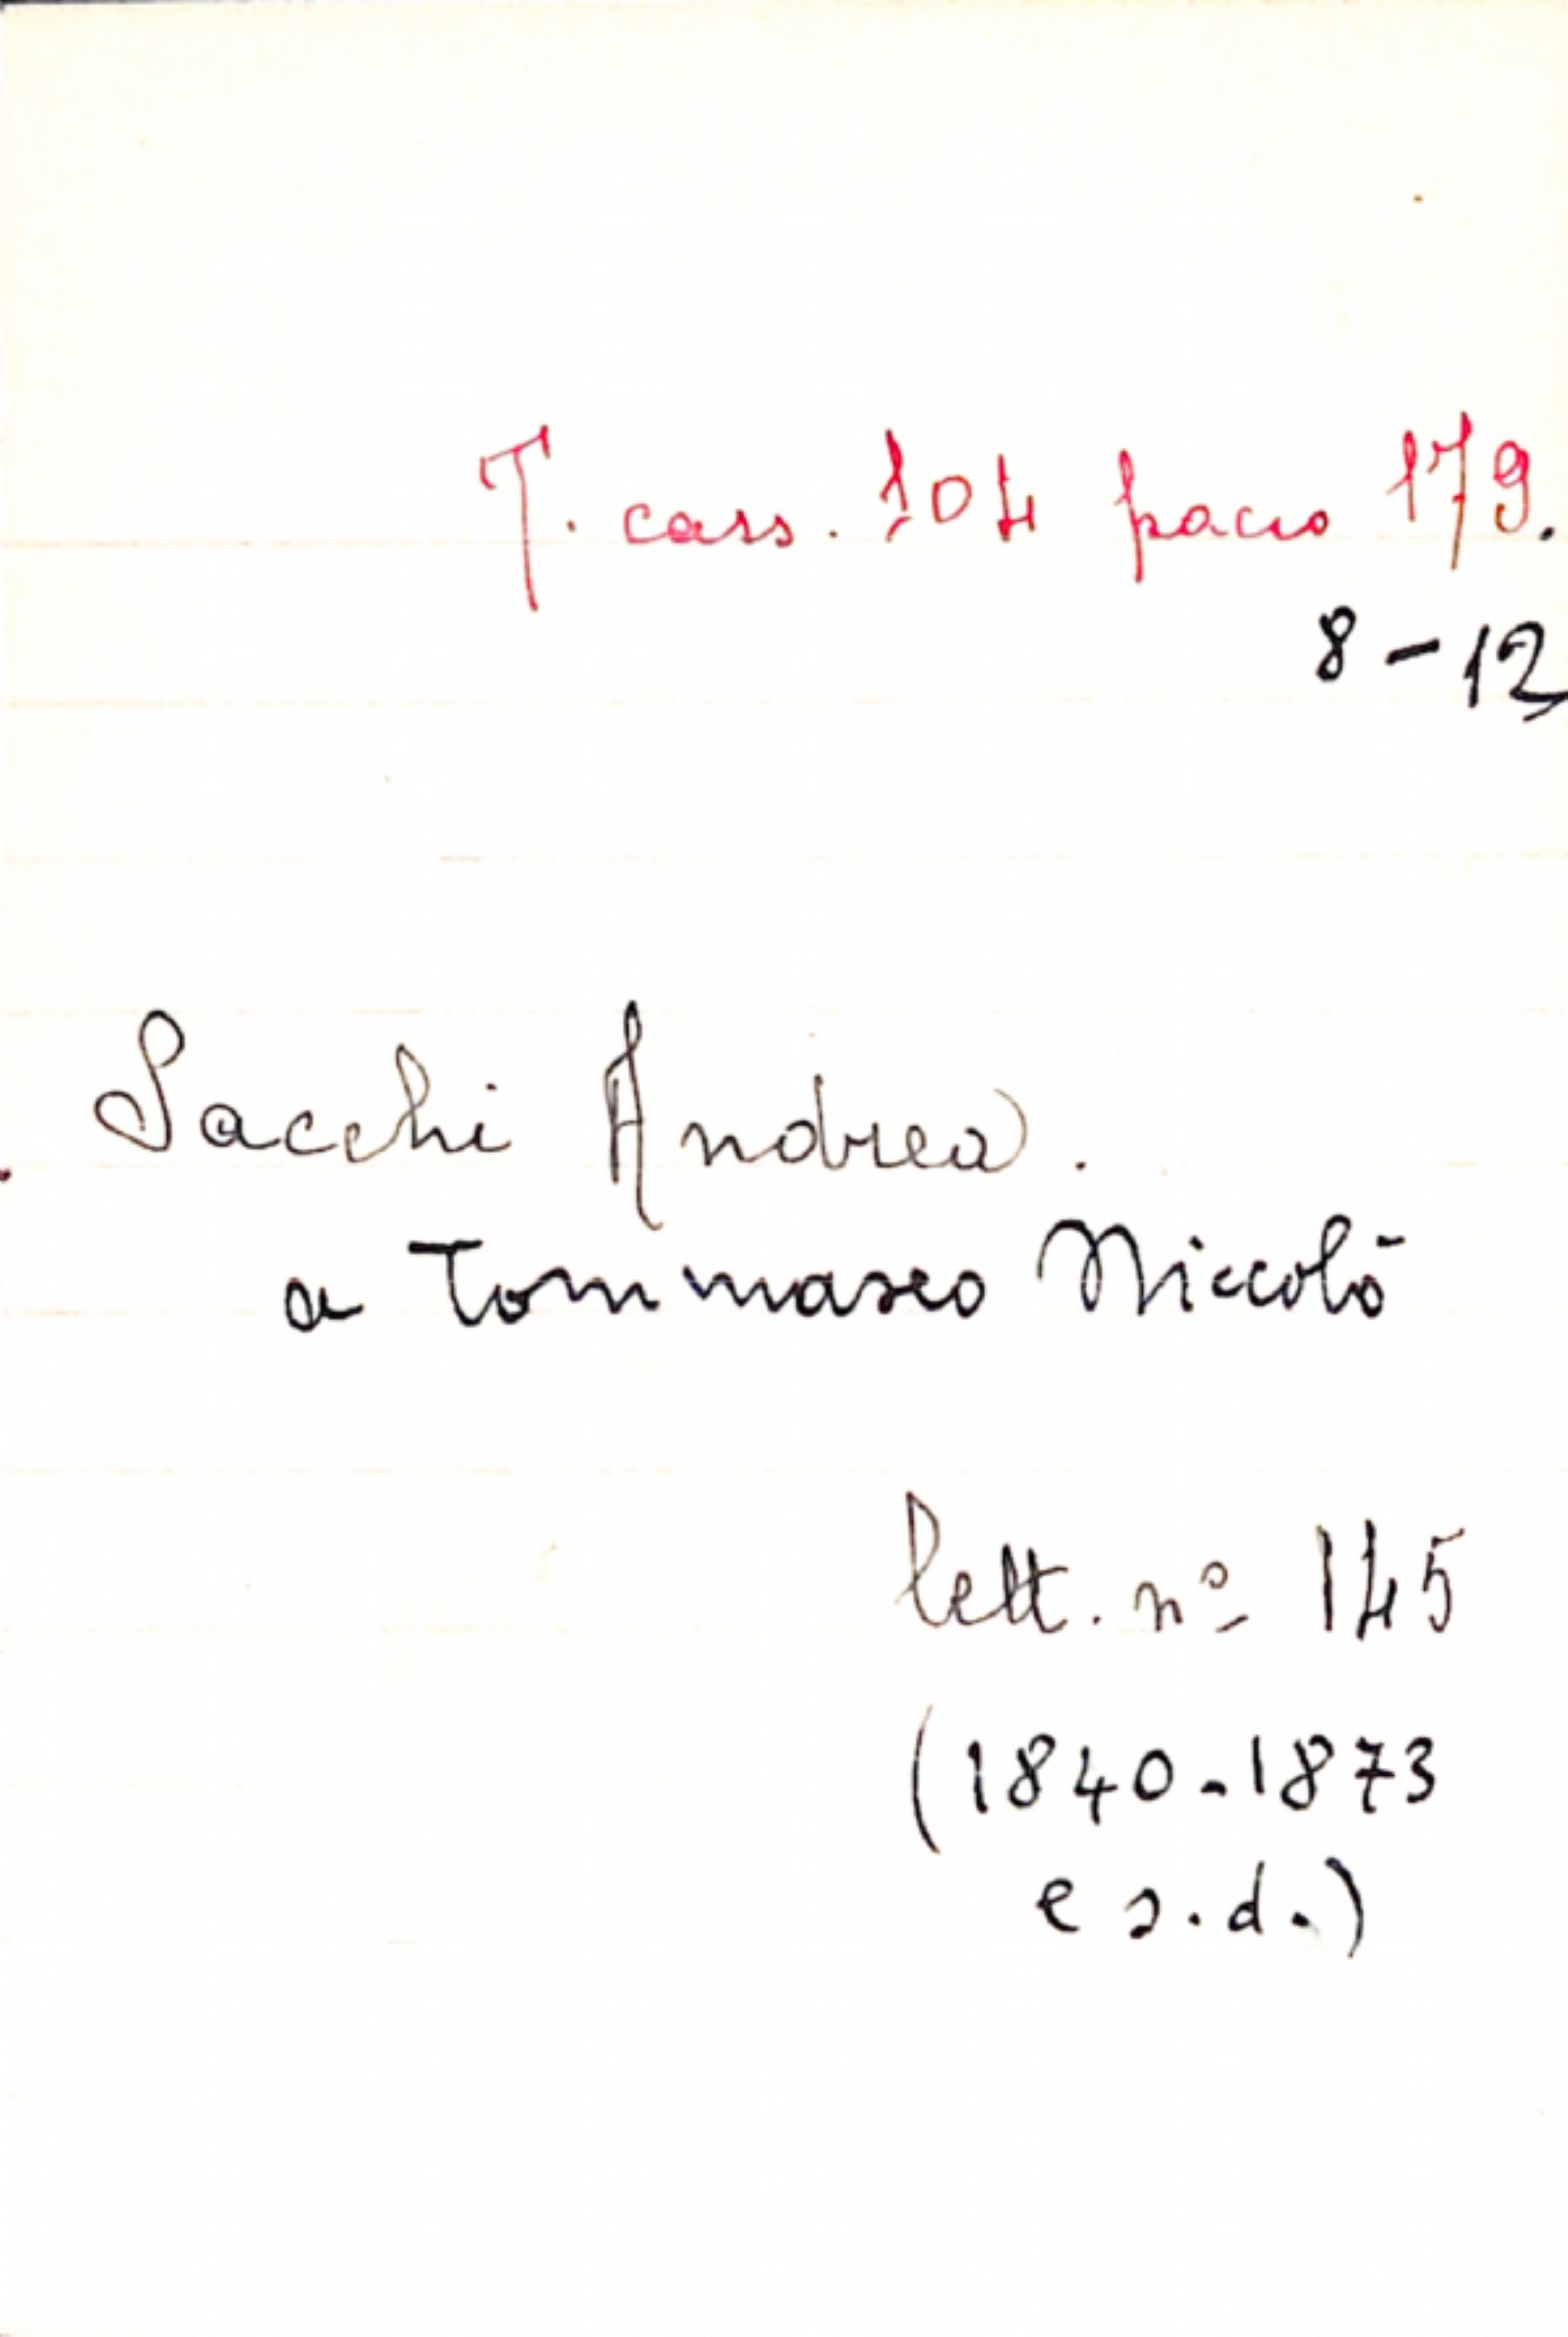 T. cass. 104 pacco 179.
8-12
Sacchi Andrea.
a Tommaseo Niccolò
lett. nº 145
(1840-1873
e s.d.)